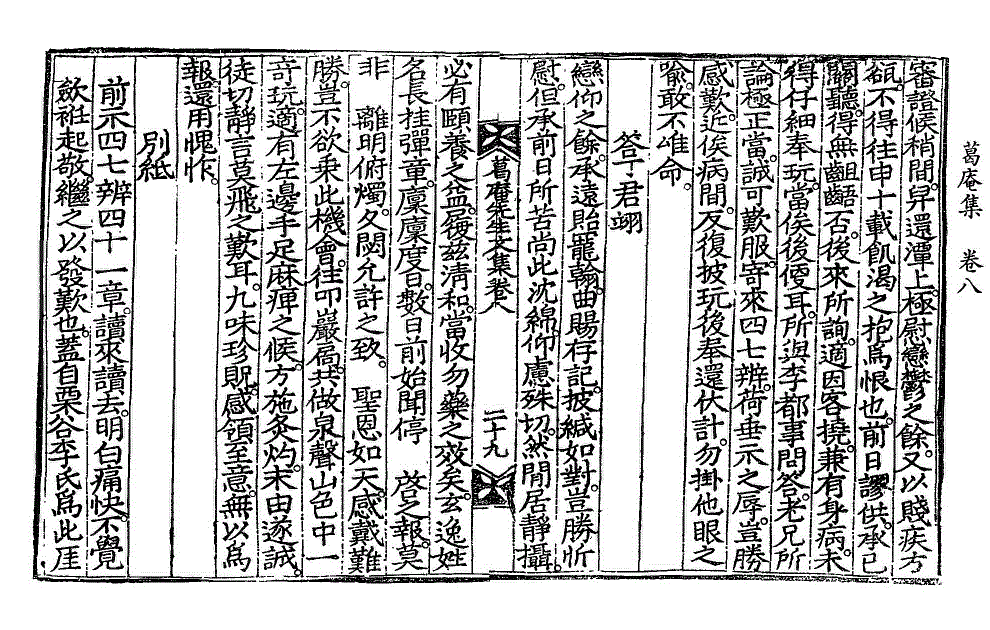 葛庵集　卷八
審證候稍間。舁還潭上。極慰戀鬱之餘。又以賤疾方
㞃。不得往申十載飢渴之抱爲恨也。前日謬供。承已
關聽。得無齟齬否。後來所詢。適因客撓。兼有身病。未
得仔細奉玩。當俟後便耳。所與李都事問答。老兄所
論極正當。誠可歎服。寄來四七辨。荷垂示之辱。豈勝
感歎。近俟病間。反復披玩後奉還伏計。勿掛他眼之
喩。敢不唯命。
答丁君翊
戀仰之餘。承遠貽寵翰。曲賜存記。披緘如對。豈勝忻
慰。但承前日所苦尙此沈綿。仰慮殊切。然閒居靜攝。
葛庵先生文集卷八　二十九
必有頤養之益。履玆淸和。當收勿藥之效矣。玄逸姓
名長挂彈章。廩廩度日。數日前始聞停　啓之報。莫
非　離明俯燭。久閟允許之致。　聖恩如天。感戴難
勝。豈不欲乘此機會。往叩巖扃。共做泉聲山色中一
奇玩。適有左邊手足麻痺之候。方施灸灼。末由遂誠。
徒切靜言莫飛之歎耳。九味珍貺。感領至意。無以爲
報。還用愧怍。
別紙
前示四七辨四十一章。讀來讀去。明白痛快。不覺
斂衽起敬。繼之以發歎也。蓋自栗谷李氏爲此厓